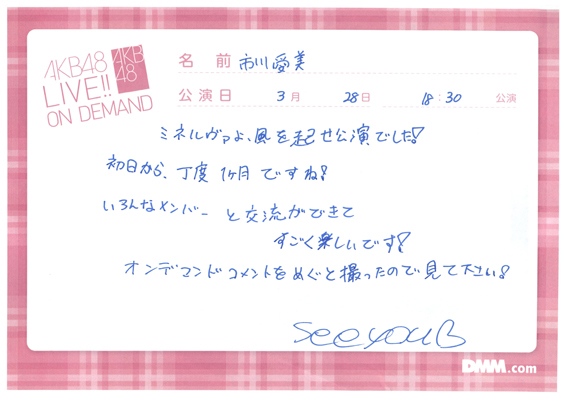 AKB48
LIVE!!
ON DEMAND
AKB
48
名 前 市川愛美
公演日 3月 28日 18:30 公演
ミネルヴァよ、風を起せ公演でした!
初日から、丁度 1ヶ月 ですね!
いろんなメンバー と 交流ができて
すごく楽しいです!
オンデマンドコメントをめぐと撮ったので見て下さい!
see you
DMM.com